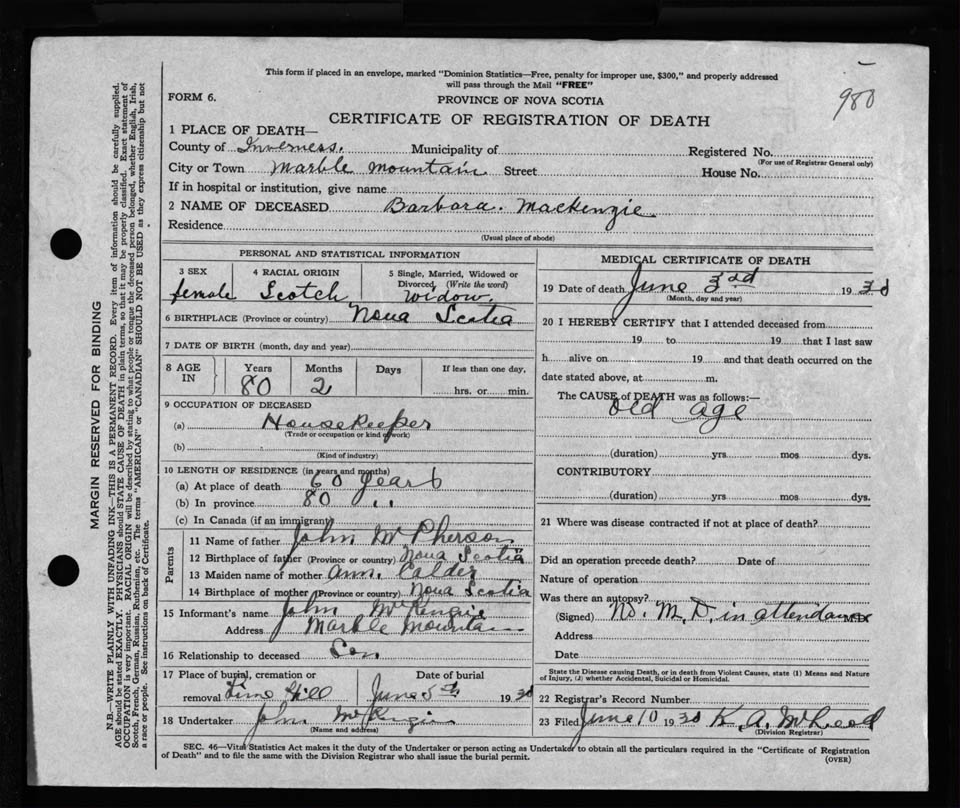 This form if placed in an envelope, marked "Dominion Statistics—Free, penalty for improper use, $300," and properly addressed
will pass through the Mail "FREE"
980
FORM 6.
PROVINCE OF NOVA SCOTIA
CERTIFICATE OF REGISTRATION OF DEATH
1 PLACE OF DEATH—
County of Inverness. Municipality of Registered No.
(For use of Registrar General only)
City or Town Marble Mountain Street House No.
If in hospital or institution, give name
2 NAME OF DECEASED Barbara. Mackenzie
Residence
(Usual place of abode)
PERSONAL AND STATISTICAL INFORMATION
3 SEX 4 RACIAL ORIGIN 5 Single, Married, Widowed or
Divorced, (Write the word)
female Scotch widow.
6 BIRTHPLACE (Province or country) Nova Scotia
7 DATE OF BIRTH (month, day and year)
8 AGE IN Years Months Days If less than one day,
80 2 hrs. or min.
9 OCCUPATION OF DECEASED
(a) Housekeeper
(Trade or occupation or kind of work)
(b)
(Kind of industry)
10 LENGTH OF RESIDENCE (in years and months)
(a) At place of death 60 years
(b) In province 80 ,,
(c) In Canada (if an immigrant)
Parents
11 Name of father John McPherson
12 Birthplace of father (Province or country) Nova Scotia
13 Maiden name of mother Ann. Calder
14 Birthplace of mother (Province or country) Nova Scotia
15 Informant's name John McKenzie
Address Marble Mountain
16 Relationship to deceased Son
17 Place of burial, cremation or Date of burial
removal Lime Hill June 5th 1938
18 Undertaker John McKenzie
(Name and address)
MEDICAL CERTIFICATE OF DEATH
19 Date of death June 3rd 1938
(Month, day and year)
20 I HEREBY CERTIFY that I attended deceased from
19 to 19 that I last saw
h alive on 19 and that death occurred on the
date stated above, at m.
The CAUSE of DEATH was as follows:—
Old age
(duration) yrs mos dys.
CONTRIBUTORY
(duration) yrs mos dys.
21 Where was disease contracted if not at place of death?
Did an operation precede death? Date of
Nature of operation
Was there an autopsy?
(Signed) No. M. D. in attendance M.D.
Address
Date
State the Disease causing Death, or in death from Violent Causes, state (1) Means and Nature
of Injury, (2) whether Accidental, Suicidal or Homicidal.
22 Registrar's Record Number
23 Filed June 10 1938 K. A. McLeod
(Division Registrar)
SEC. 46—Vital Statistics Act makes it the duty of the Undertaker or person acting as Undertaker to obtain all the particulars required in the "Certificate of Registration
of Death" and to file the same with the Division Registrar who shall issue the burial permit.
(OVER)
MARGIN RESERVED FOR BINDING
N.B.—WRITE PLAINLY WITH UNFADING INK—THIS IS A PERMANENT RECORD. Every item of information should be carefully supplied.
AGE should be stated EXACTLY. PHYSICIANS should STATE CAUSE OF DEATH in plain terms, so that it may be properly classified. Exact statement of
OCCUPATION is very important. RACIAL ORIGIN will be described by stating to what people or tongue the deceased person belonged, whether English, Irish,
Scotch, French, German, Russian, Ruthenian, etc. The terms "AMERICAN" or "CANADIAN" SHOULD NOT BE USED as they express citizenship but not
a race or people. See instructions on back of Certificate.